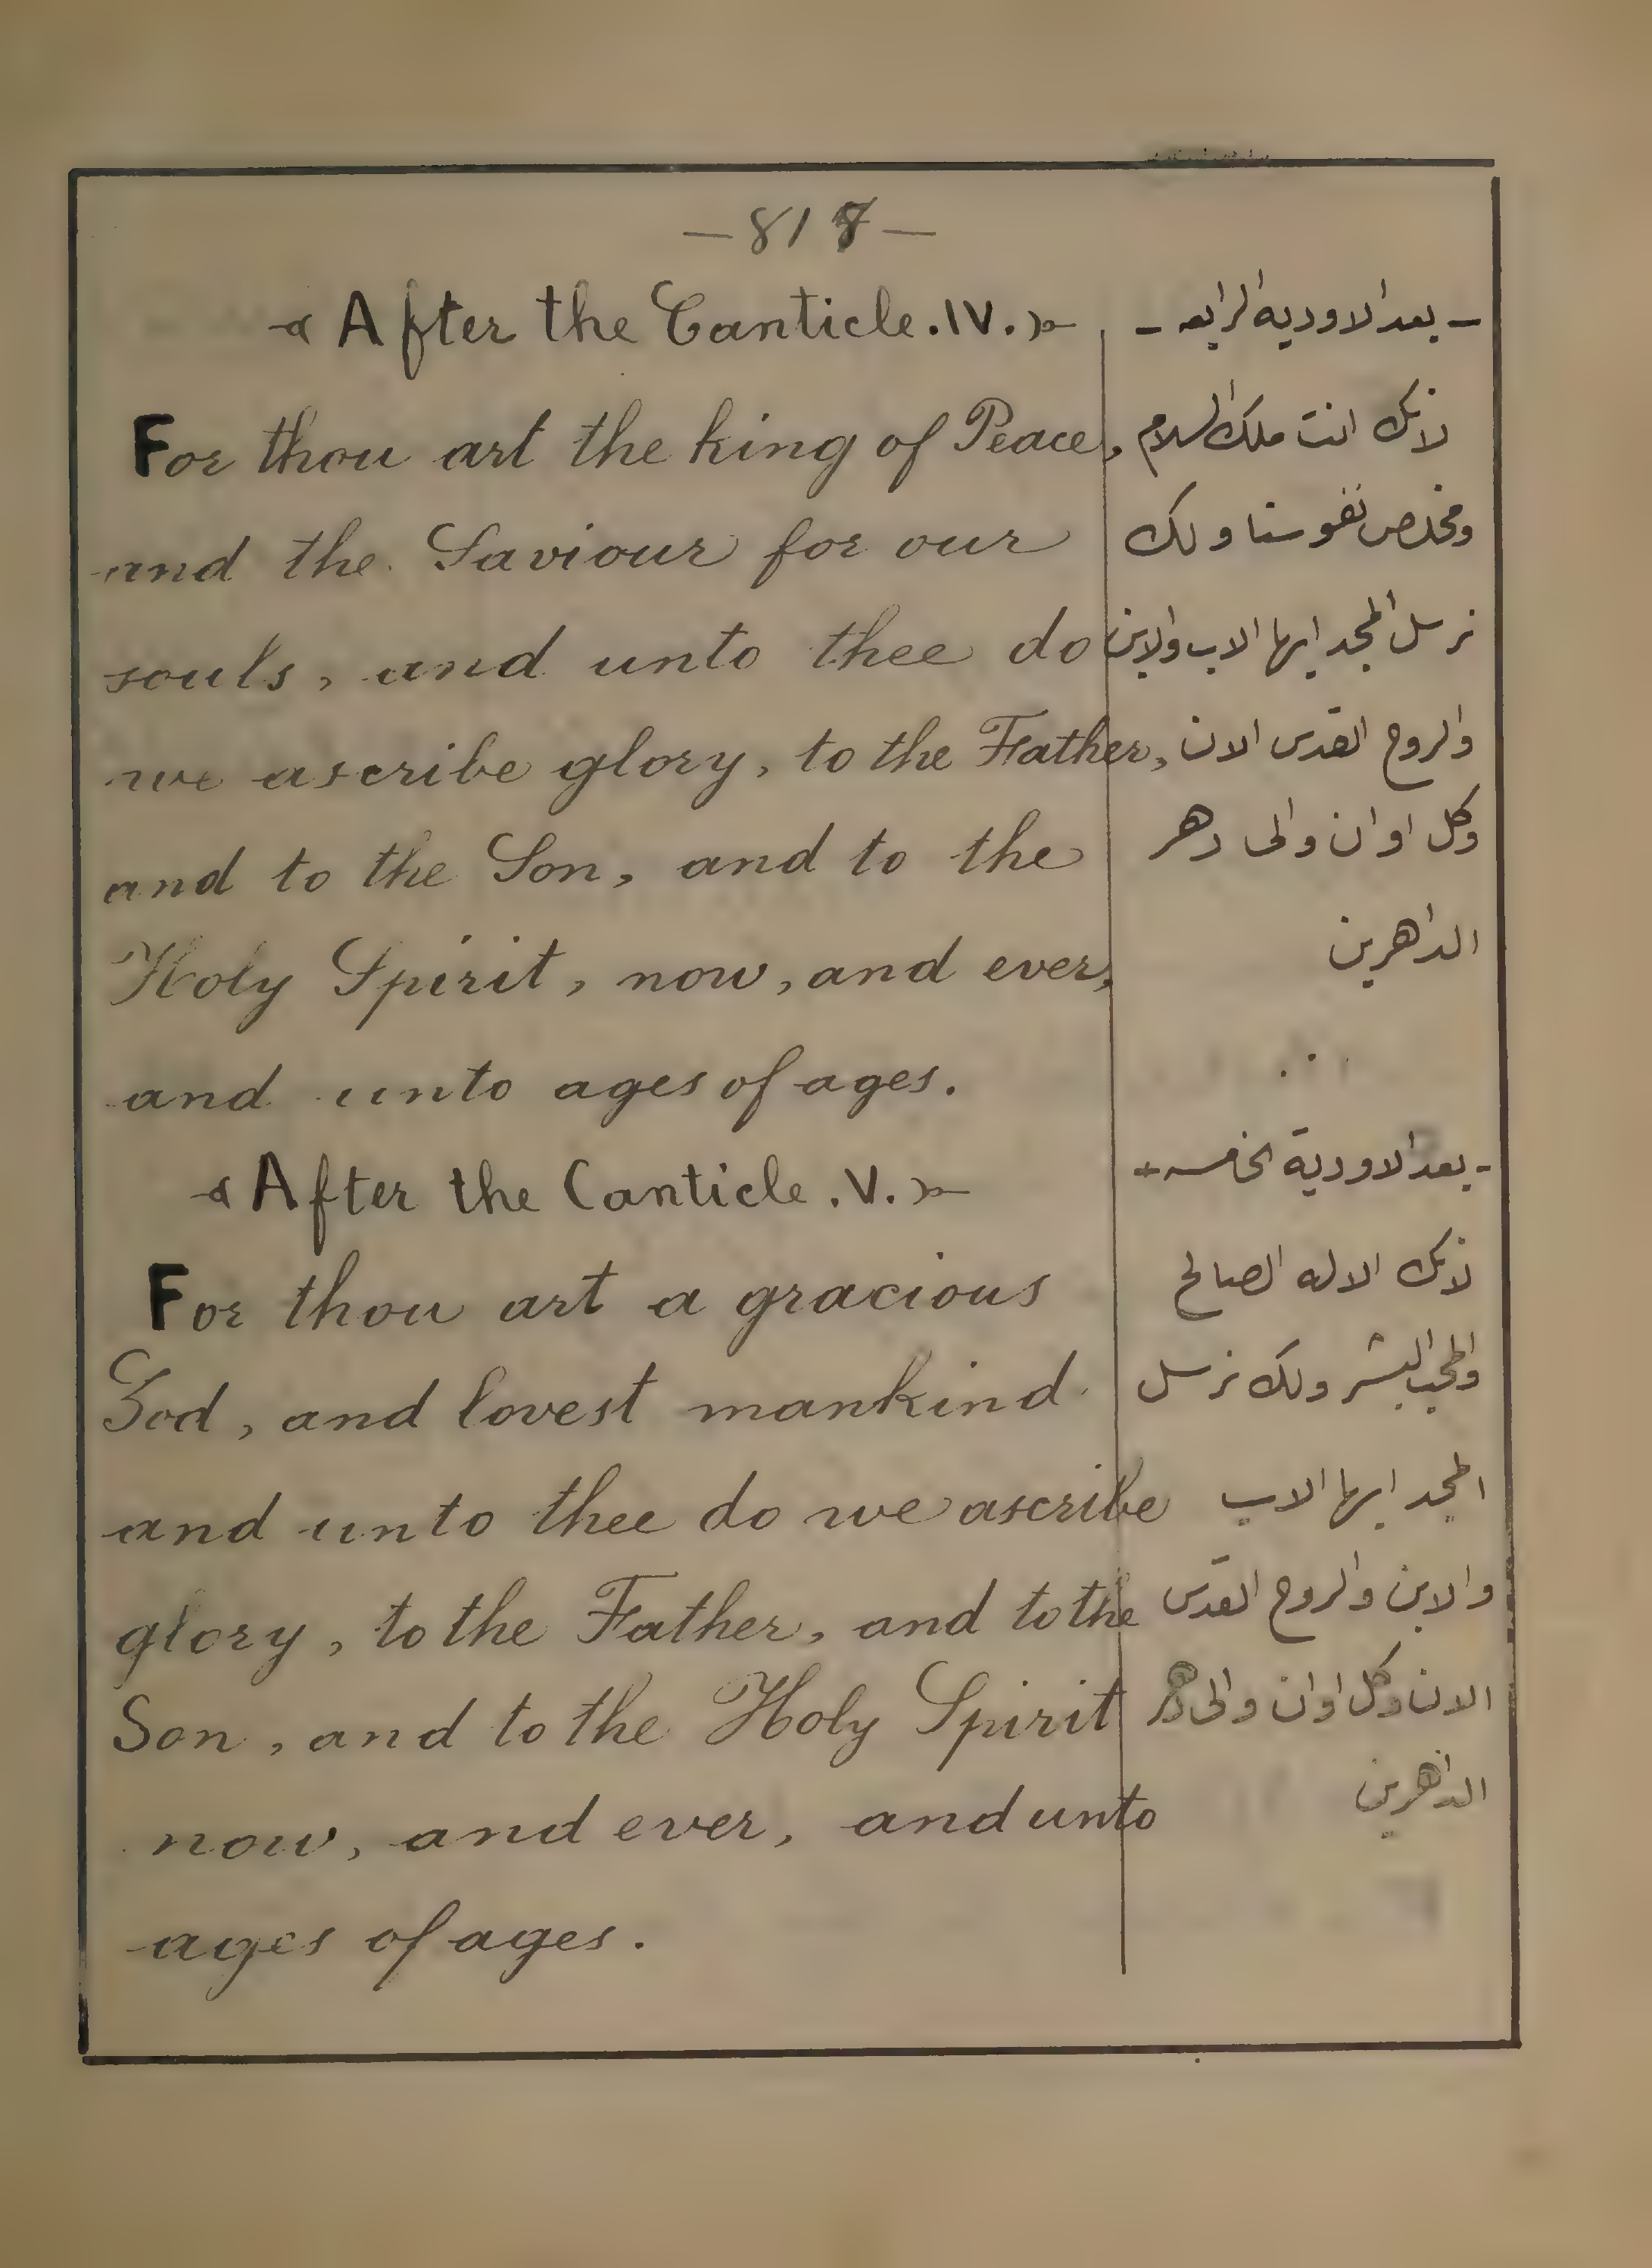 —818—
After the Canticle. IV.
For thou art the king of Peace,
and the Saviour for our
souls, and unto thee do
we ascribe glory, to the Father,
and to the Son, and to the
Holy Spirit, now, and ever,
and unto ages of ages.
After the Canticle. V.
For thou art a gracious
God, and lovest mankind
and unto thee do we ascribe
glory, to the Father, and to the
Son, and to the Holy Spirit
now, and ever, and unto
ages of ages.
- بعد الاودية الرابعه -
لانك انت ملك السلام
ومخلص نفوسنا ولك
نرسل المجد ايها الاب والابن
والروح القدس الان
وكل اوان والى دهر
الداهرين
- بعد الاودية الخامسه -
لانك الاله الصالح
والمحب البشر ولك نرسل
المجد ايها الاب
والابن والروح القدس
الان وكل اوان والى دهر
الداهرين